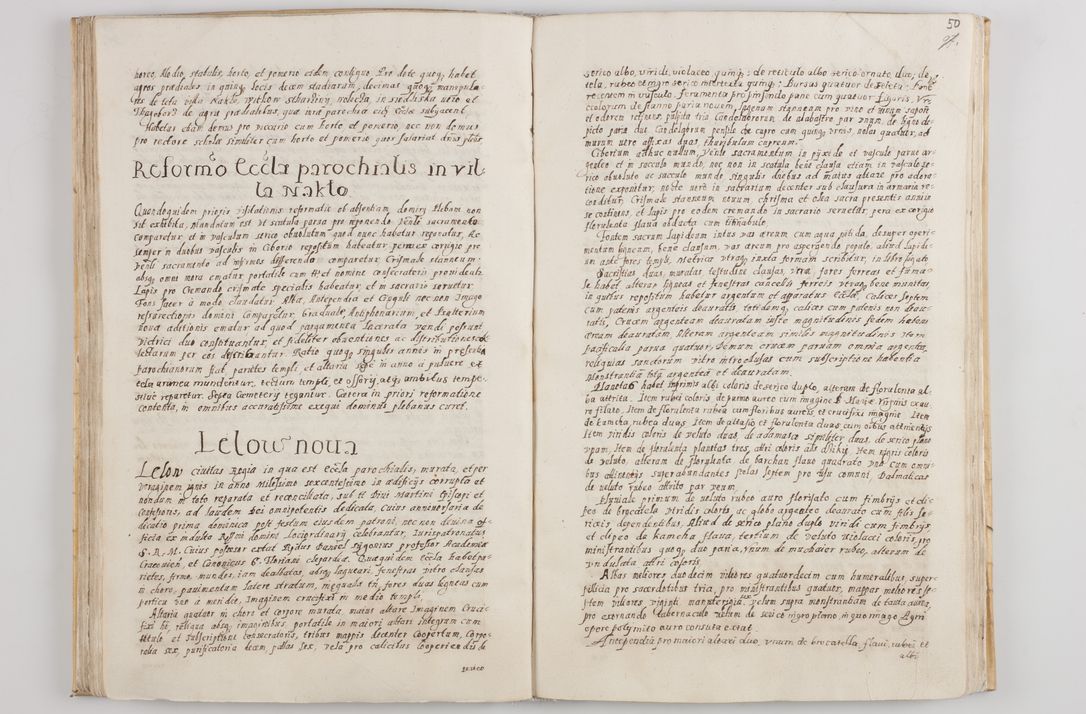 horeo, Alodio, stabulis, horto, et pomerio eidem contiguo. Pro dote quoq, habet
agros prædiales in quinq, locis decem stadiorum, decimas quoq, manipula
tis de tota villa Naklo,
Thagoborÿ de agris prædialibus, quæ una parochia Ecclæ subjacent
Habetur etiam domus pro vicario cum horto et pomerio, nec non domus
pro rectore scholæ similiter cum horto et pomerio quor salariat dnus plebs
Reformo Eccla parochialis in vil
la Naklo
Quandoquidem prioris visitationis reformatio ob absentiam domini Plebani non
sit exhibita, Mandatum est ut scatula parva pro reponendo Venli sacramento
comparetur, et in vasculum serico obvolutum quod nunc habetur reponatur, Ac
semper in duobus vasculis in Ciborio repositum habeatur, pera ex corijgio pro
Venli sacramento ad infirmos differendo comparetur Crismale stanneum
absq, omni mora ematur portatile cum tit et nomine consecratoris provideatur.
Lapis pro Cremando crismate specialis habeatur, et in sacrario servetur
Fons sacer à modo claudatur Alba, Antependia et Cinguli nec non Imago
resurrectionis domini Comparetur, Graduale, Antiphonarium, et Psalterium
novæ æditionis ematur ad quod pargamenea lacerata vendi possunt
Victrici duo constituantur, et fideliter obventiones ac distributiones col
lectarum per eos distribuantur. Ratio quoq, singulis annis in presentia
Parochianorum fiat, parietes templi, et altaria sæpe in anno à pulvere et
tela aranea mundentur, tectum templi, et ossorij, atq, ambitus tempe
stive reparetur. Septa Cœmeterij tegantur. Cætera in priori reformatione
contenta, in omnibus accuratissime exequi dominus plebanus curet.
Lelow nova
Lelow civitas Regia in qua est eccla parochialis, murata, et per
voraginem ignis in anno Milesimo sexcentesimo in ædificijs corrupta et
nondum in toto reparata et reconciliata, sub tt Divi Martini Episcopi et
Confessoris, ad laudem Dei omnipotentis dedicata, Cuius anniversaria de
dicatio prima dominica post festum eiusdem patroni, nec non divina of
ficia ex mandato Rssmi domini Loci ordinarij celebrantur. Jurispatronatus
S. R. M. Cuius possessor extat Rndus Daniel Sigonius professor Academiæ
Cracovien, et Canonicus S. Floriani Clepardiæ Quæquidem eccla habet pa
rietes, firmos, mundos, iam dealbatos, absq, laqueari, fenestras vitro clausas
in choro, pavimentum latere stratum, inequale tn, fores duas ligneas cum
portica una a meridie, Imaginem crucifixi in medio templi,
Altaria quatuor in choro et corpore murata, maius altare Imaginem Cruci
fixi hns, reliqua absq, imaginibus, portatile in maiori altari integrum cum
titulo et subscriptione consecratoris, tribus mappis decenter coopertum, Corpo
ralia sex, purificatoria decem, pallas sex, vela pro calicibus cooperiendis de
serico
50
serico albo, viridi, violaceo, quinq,; de reticulo albo serico ornato, duo, de
tela, rubeo et nigro serico intertexta quinq,: Bursas quatuor de
recentem in vasculo, feramenta pro pinsendo pane cum quatuor figuris, Vr
ceolorum de stanno paria novem, lagenam stanneam pro vino et
et oderem pulpita tria Candelabrorum de alabastro par unum, de ligno de
picto paria duo Candelabrum pensile de cupro cum quinq, armis, nolas quatuor, ad
murum vero affixas duas, thuribulum cupreum.
Ciborium adhuc nullum, Venle sacramentum in pyxide et vasculo parvo ar
genteo et in sacculo mundo, nec non in scatula bene clausa etiam in vasculo se
rico obvoluto ac sacculo mundo singulis diebus ad maius altare pro adora
tione exponitur, nocte vero in sacrarium decenter sub clausura in armario re
conditur, Crismale stanneum novum, chrisma et olea sacra præsentis anni in
se continens, et lapis pro eodem cremando in sacrario servetur, pera ex corijgio
florulenta flava obducta cum tintinabulo.
Fontem sacrum lapideum intus vas æreum cum aqua nitida, desuper operi
mentum ligneum, bene clausum, vas æreum pro aspergendo populo, aliud lapide
um ante fores templi, Metrica utraq, iuxta formam scribitur, in libro ligato
Sacristias duas, muratas testudine clausas, vtra, fores ferreas et firmas
se habet alteras ligneas et fenestras cancellis ferreis utraq, bene munitas,
in quibus repositum habetur argentum et aparatus Ecclæ, Calices Septem
cum patenis argenteis deauratis, totidemq, calices cum patenis non deau
ratis, Crucem argenteam deauratam insce magnitudinis pedem habens
æream deauratam, Alteram argenteam similis magnitudinis Item
pacificalia parva quatuor, Demum crucem parvam omnia argentea,
reliquias sanctorum vitro introclusas cum subscriptione habentia
Monstrantia tota argentea et deauratam.
Planetas habet inprimis albi coloris de serico duplo, alteram de florulenta al
ba attrita. Item rubei coloris de panno aureo cum imagine B. Mariæ Virginis ex au
ro filato, Item de florulenta rubea cum floribus aureis, et crucifixi imagine Item
de kamcha rubea duas, Item de atlasio et florulenta duas, cum oibus attinentijs
Item viridis coloris de veluto duas, de adamasco similiter duas, de serico plano
vnam, Item de florulenta planetas tres, atri coloris Item nigris coloris
de veluto, alteram de florulenta, de barchan flavo quadrato una cum omni
bus attinentijs superabundantes stolas septem pro usu comuni Dalmaticas
de veluto rubeo attrito par unum,
Pluviale primum de veluto rubeo auro florisato cum fimbrijs et cli
peo de brocatela viridis coloris ac globo argenteo deaurato cum filis se
riceis dependentibus, Aliud de serico plano duplo viridi cum fimbrijs,
et clipeo de kamcha flava, tertium de veluto violacei coloris, pro
ministrantibus quoq, duo paria, unum de muchaier rubeo, alterum de
undulata atri coloris
Albas meliores duodecim viliores quatuordecim cum humeralibus, super
pellicia pro sacerdotibus tria, pro ministrantibus quatuor, mappas meliores se
ptem viliores viginti, manutergia sex, velum supra monstrantiam de tauta aurea,
pro exornando tabernaculo velum de serico nigro pleno, in quo imago Agni
opere polymito auro consuta extat.
Antependia pro maiori altari duo, vnum de brocatella, flavi, rubei et
albi